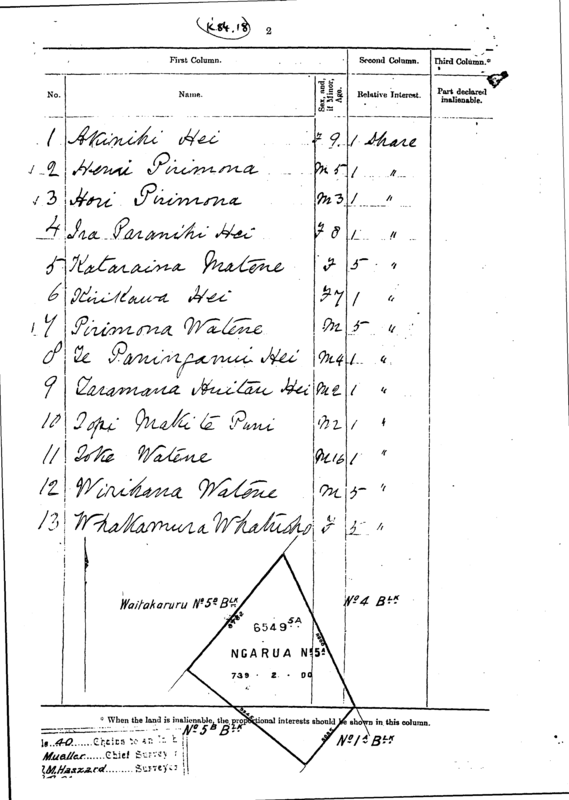 K84.18
2
First Column. Second Column. Third Column.*
No. Name. Sex, and, if Minor, Age. Relative Interest. Part declared inalienable.
1 Akinihi Hei F 9. 1 Share
2 Henui Pirimona M 5 1 "
3 Hori Pirimona M 3 1 "
4 Ira Paranihi Hei F 8 1 "
5 Kataraina Matene F 5 "
6 Kirikawa Hei F 7 1 "
7 Pirimona Watene M 5 "
8 Te Paningamui Hei M 4 1 "
9 Taramana Huitau Hei M 2 1 "
10 Topi Maki te Puni M 2 1 "
11 Toke Watene M 16 1 "
12 Wirihana Watene M 5 "
13 Whakamura Whatuoho F 5 "
Waitakaruru No 5a Blk
No 4 Blk
6549 5A
NGARUA No 5A
739 . 2 . 00
* When the land is inalienable, the proportional interests should be shown in this column.
No 5B Blk
No 1a Blk
40 Chains to an in
Mueller Chief Survey
J.M. Hazzard Surveyor